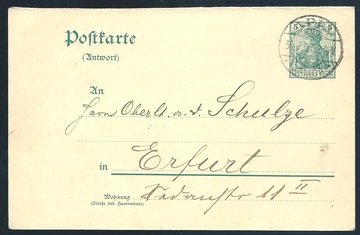 Postkarte
(Antwort)
An
Herrn Oberlt. a. d. Schulze
in Erfurt
Wohnung
(Straße und Hausnummer)
11 II